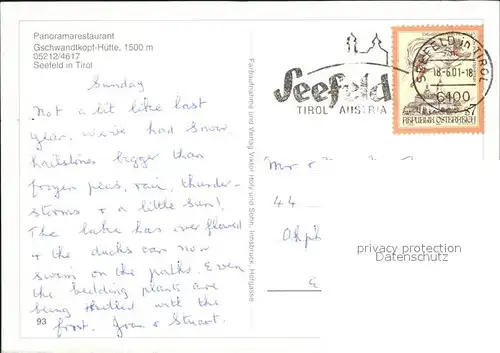 Panoramarestaurant
Gschwandtkopf-Hütte, 1500 m
05212/4617
Seefeld in Tirol
Sunday
Not a bit like last
year. We've had snow,
hailstones bigger than
frozen peas, rain, thunder-
storms & a little sun!
The lake has overflowed
& the ducks can now
swim on the paths. Even
the bedding plants are
being killed with the
frost. Joan & Stuart.
93
Farbaufnahme und Verlag Viktor Hölz und Sohn, Innsbruck, Hofgasse
Seefeld
TIROL AUSTRIA
SEEFELD in TIROL
18-6.01-18
6100
REPUBLIK ÖSTERREICH
Mr &
44
privacy protection
Datenschutz